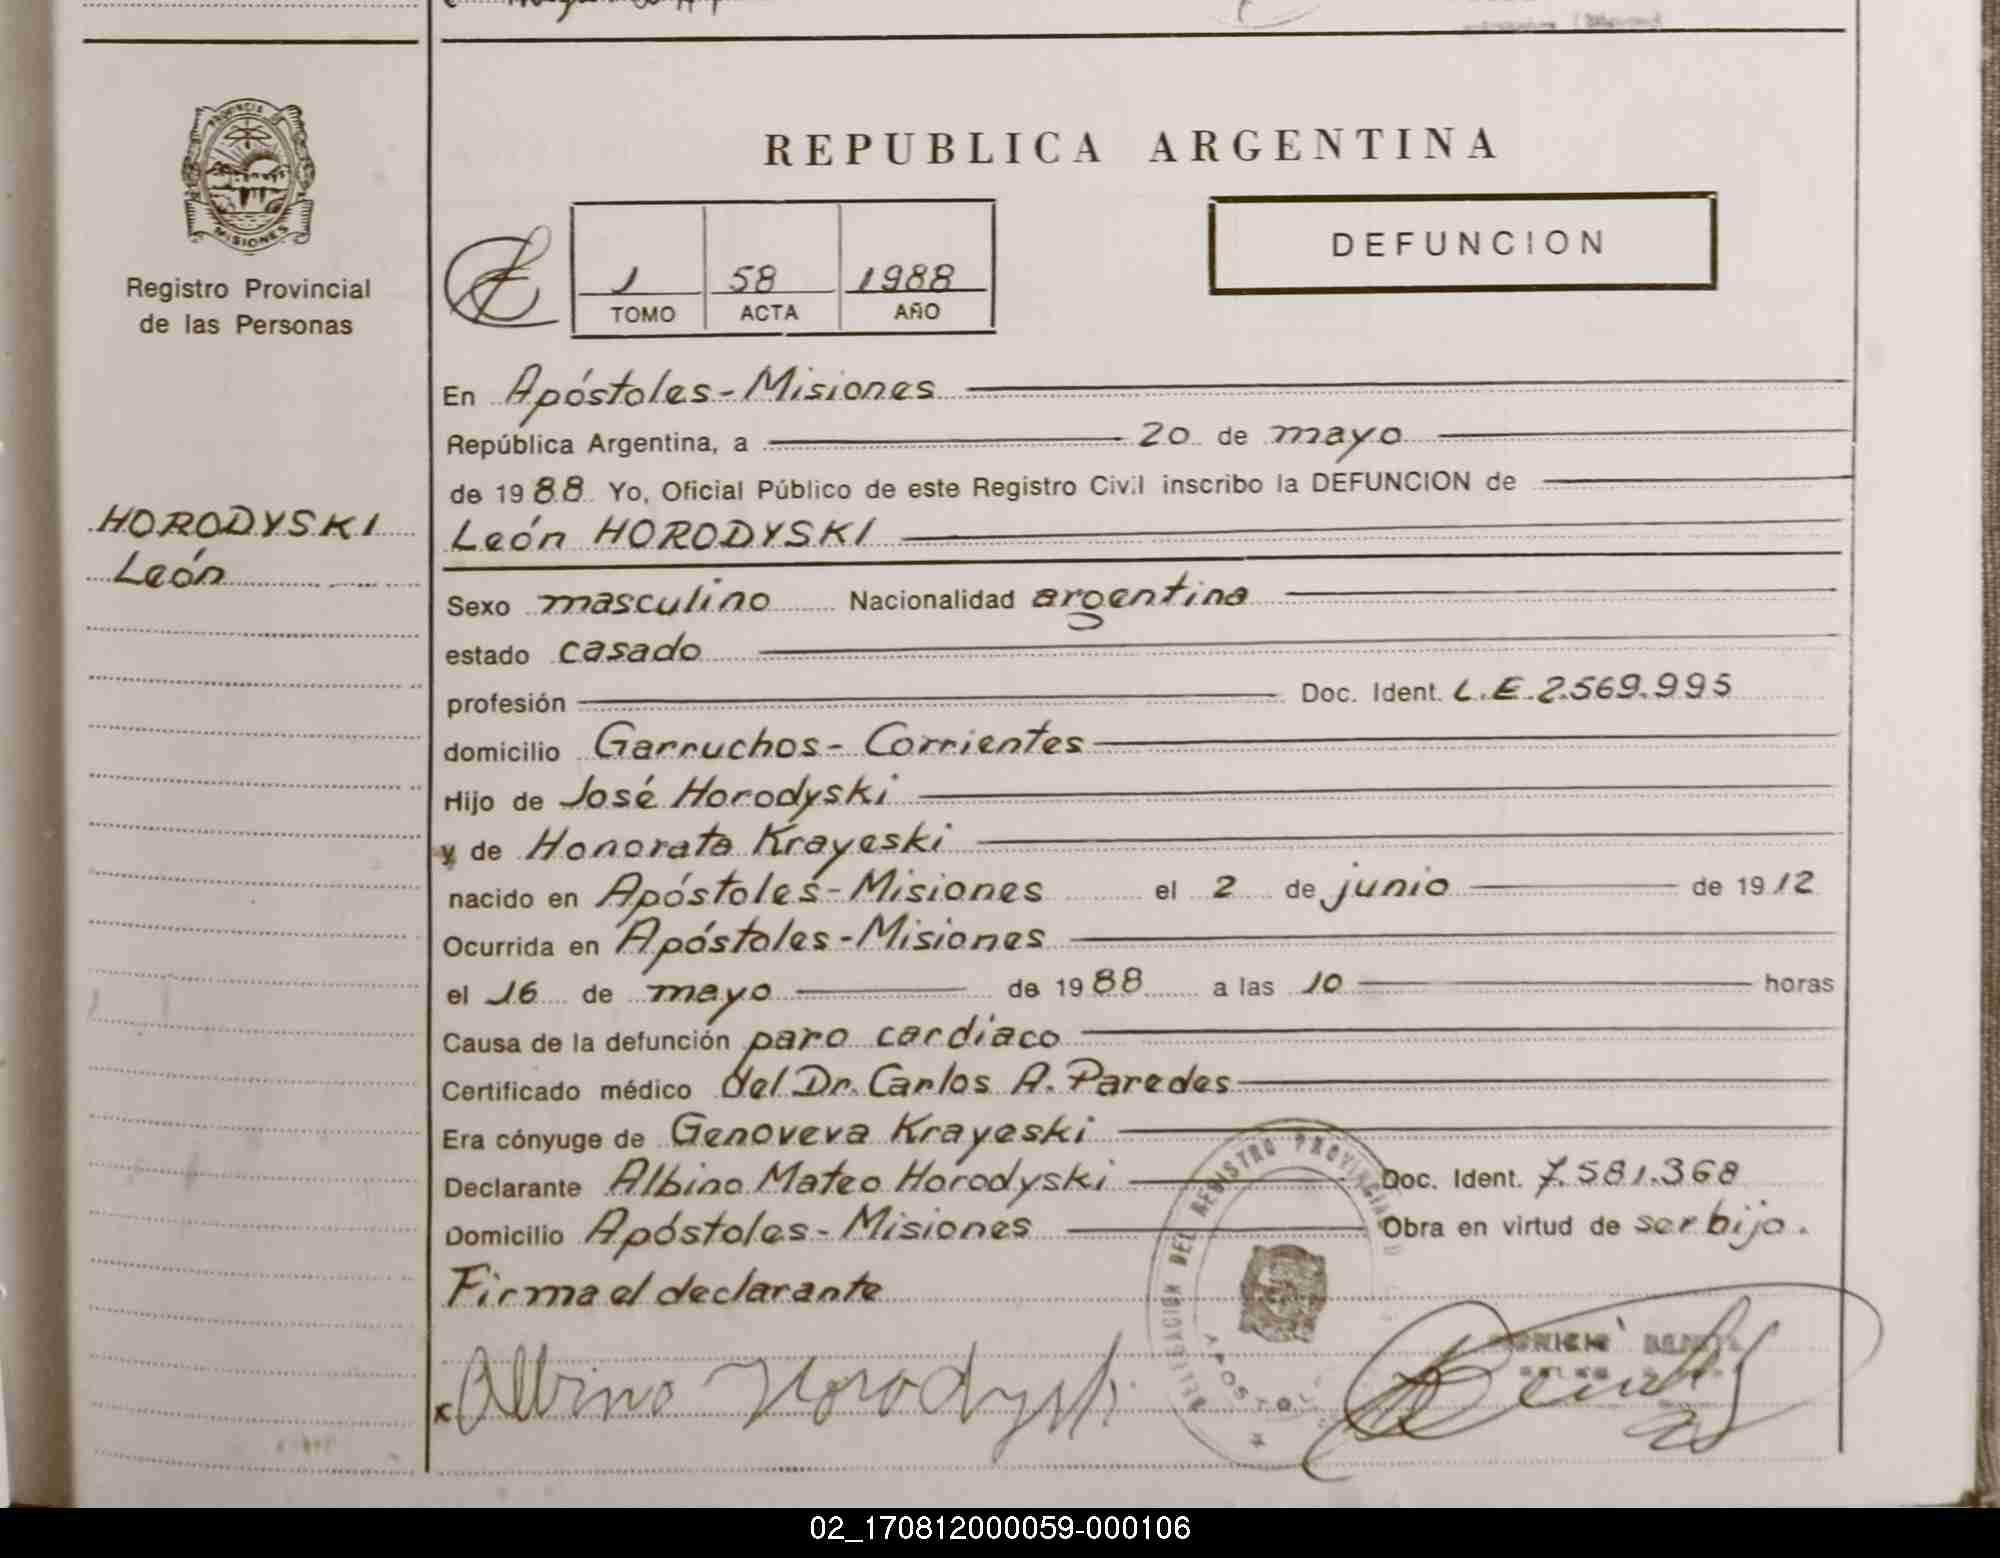 PROVINCIA
MISIONES
Registro Provincial
de las Personas
HORODYSKI
León
REPUBLICA ARGENTINA
1 58 1988
TOMO ACTA AÑO
DEFUNCION
En Apóstoles - Misiones
República Argentina, a 20 de mayo
de 1988 Yo, Oficial Público de este Registro Civil inscribo la DEFUNCION de
León HORODYSKI
Sexo masculino Nacionalidad argentina
estado casado
profesión Doc. Ident. L.E. 2.569.995
domicilio Garruchos - Corrientes
Hijo de José Horodyski
y de Honorata Krayeski
nacido en Apóstoles - Misiones el 2 de junio de 1912
Ocurrida en Apóstoles - Misiones
el 16 de mayo de 1988 a las 10 horas
Causa de la defunción paro cardiaco
Certificado médico del Dr. Carlos A. Paredes
Era cónyuge de Genoveva Krayeski
Declarante Albino Mateo Horodyski Doc. Ident. 7.581.368
Domicilio Apóstoles - Misiones Obra en virtud de ser hijo.
Firma el declarante
x Albino Horodyski
DELEGACION DEL REGISTRO PROVINCIAL
02_170812000059-000106